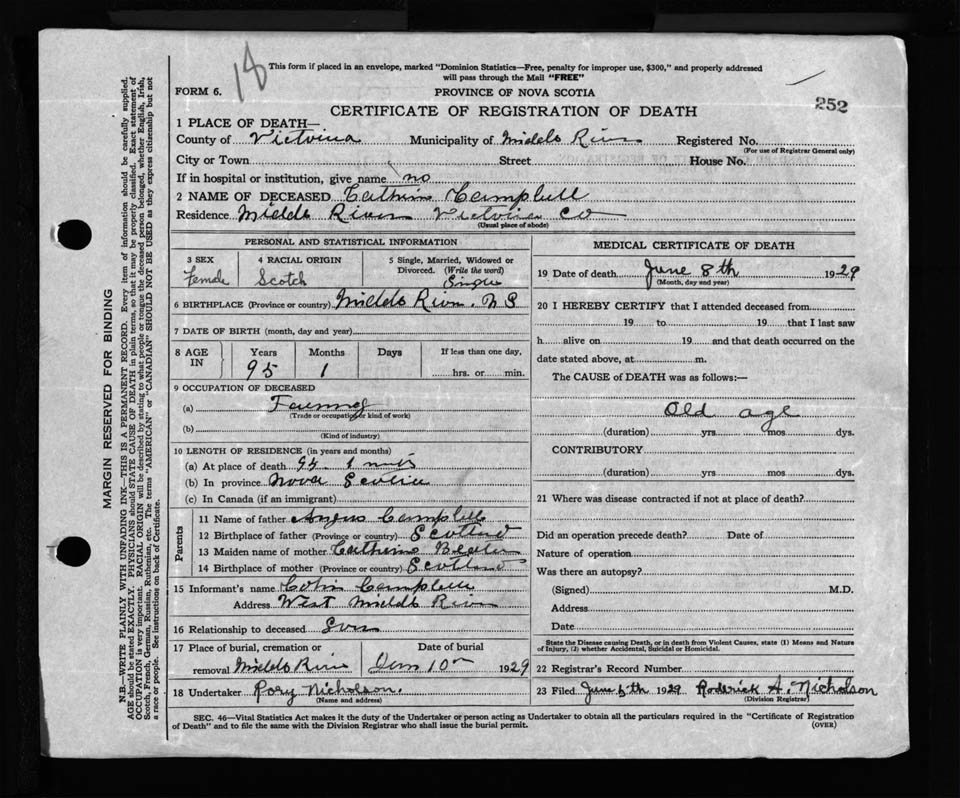 18
This form if placed in an envelope, marked "Dominion Statistics—Free, penalty for improper use, $300," and properly addressed
will pass through the Mail "FREE"
252
FORM 6.
PROVINCE OF NOVA SCOTIA
CERTIFICATE OF REGISTRATION OF DEATH
1 PLACE OF DEATH—
County of Victoria Municipality of Middle River Registered No.
(For use of Registrar General only)
City or Town Street House No.
If in hospital or institution, give name no
2 NAME OF DECEASED Cathrine Campbell
Residence Middle River Victoria Co
(Usual place of abode)
PERSONAL AND STATISTICAL INFORMATION
3 SEX 4 RACIAL ORIGIN 5 Single, Married, Widowed or
Divorced. (Write the word)
Female Scotch Single
6 BIRTHPLACE (Province or country) Middle River N S
7 DATE OF BIRTH (month, day and year)
8 AGE IN Years Months Days If less than one day,
95 1 hrs. or min.
9 OCCUPATION OF DECEASED
(a)
(Trade or occupation or kind of work)
(b)
(Kind of industry)
10 LENGTH OF RESIDENCE (in years and months)
(a) At place of death 95 1
(b) In province Nova Scotia
(c) In Canada (if an immigrant)
Parents
11 Name of father Angus Campbell
12 Birthplace of father (Province or country) Scotland
13 Maiden name of mother Catherine
14 Birthplace of mother (Province or country) Scotland
15 Informant's name Colin Campbell
Address West Middle River
16 Relationship to deceased Son
17 Place of burial, cremation or Date of burial
removal Middle River 10 1929
18 Undertaker Rory Nicholson.
(Name and address)
MEDICAL CERTIFICATE OF DEATH
19 Date of death June 8th 1929
(Month, day and year)
20 I HEREBY CERTIFY that I attended deceased from
19 to 19 that I last saw
h alive on 19 and that death occurred on the
date stated above, at m.
The CAUSE of DEATH was as follows:—
Old age
(duration) yrs mos dys.
CONTRIBUTORY
(duration) yrs mos dys.
21 Where was disease contracted if not at place of death?
Did an operation precede death? Date of
Nature of operation
Was there an autopsy?
(Signed) M.D.
Address
Date
State the Disease causing Death, or in death from Violent Causes, state (1) Means and Nature
of Injury, (2) whether Accidental, Suicidal or Homicidal.
22 Registrar's Record Number
23 Filed June 1929 Roderick A. Nicholson
(Division Registrar)
SEC. 46—Vital Statistics Act makes it the duty of the Undertaker or person acting as Undertaker to obtain all the particulars required in the "Certificate of Registration
of Death" and to file the same with the Division Registrar who shall issue the burial permit.
(OVER)
MARGIN RESERVED FOR BINDING
N.B.—WRITE PLAINLY WITH UNFADING INK—THIS IS A PERMANENT RECORD. Every item of information should be carefully supplied.
AGE should be stated EXACTLY. PHYSICIANS should STATE CAUSE OF DEATH in plain terms, so that it may be properly classified. Exact statement of
OCCUPATION is very important. RACIAL ORIGIN will be described by stating to what people or tongue the deceased person belonged, whether English, Irish,
Scotch, French, German, Russian, Ruthenian, etc. The terms "AMERICAN" or "CANADIAN" SHOULD NOT BE USED as they express citizenship but not
a race or people. See instructions on back of Certificate.